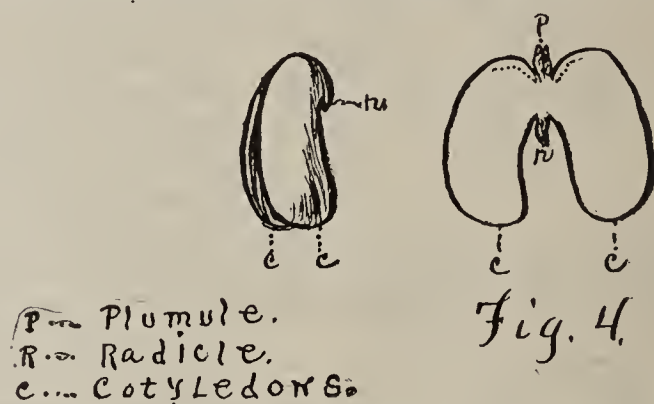 P
r
r
c c
c c
P.... Plumule.
R... Radicle.
c.... Cotyledons.
Fig. 4.